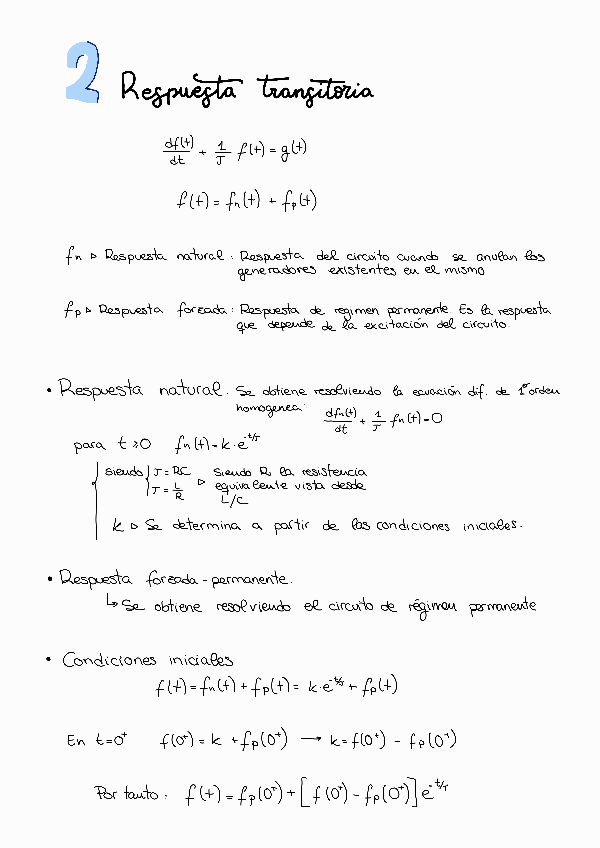 2 Respuesta transitoria
df(t)/dt + 1/τ f(t) = g(t)
f(t) = fn(t) + fp(t)
fn ▷ Respuesta natural: Respuesta del circuito cuando se anulan los
generadores existentes en el mismo
fp ▷ Respuesta forzada: Respuesta de regimen permanente. Es la respuesta
que depende de la excitación del circuito.
• Respuesta natural. Se obtiene resolviendo la ecuación dif. de 1º orden
homogenea: dfn(t)/dt + 1/τ fn(t) = 0
para t ≥ 0 fn(t) = k · e^-t/τ
siendo τ = RC ▷ siendo R la resistencia
τ = L/R equivalente vista desde
L/C
k ▷ Se determina a partir de las condiciones iniciales.
• Respuesta forzada - permanente.
↳ Se obtiene resolviendo el circuito de régimen permanente
• Condiciones iniciales
f(t) = fn(t) + fp(t) = k · e^-t/τ + fp(t)
En t = 0⁺ f(0⁺) = k + fp(0⁺) → k = f(0⁺) - fp(0⁺)
Por tanto: f(t) = fp(0⁺) + [f(0⁺) - fp(0⁺)] e^-t/τ